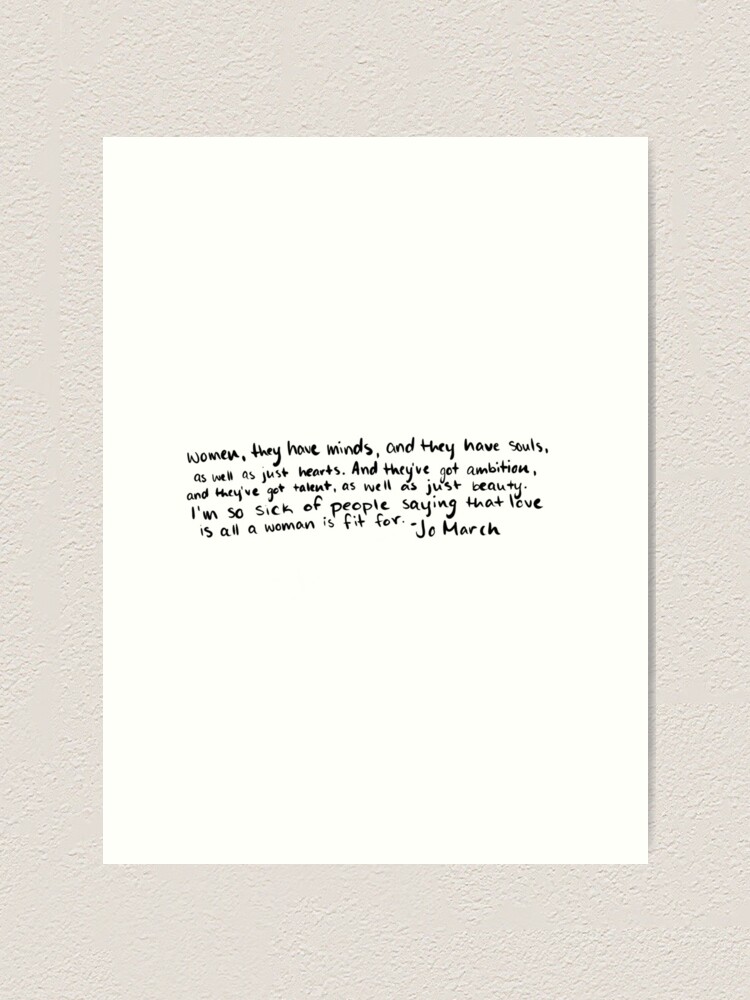 women, they have minds, and they have souls,
as well as just hearts. And they've got ambition,
and they've got talent, as well as just beauty.
I'm so sick of people saying that love
is all a woman is fit for. -Jo March